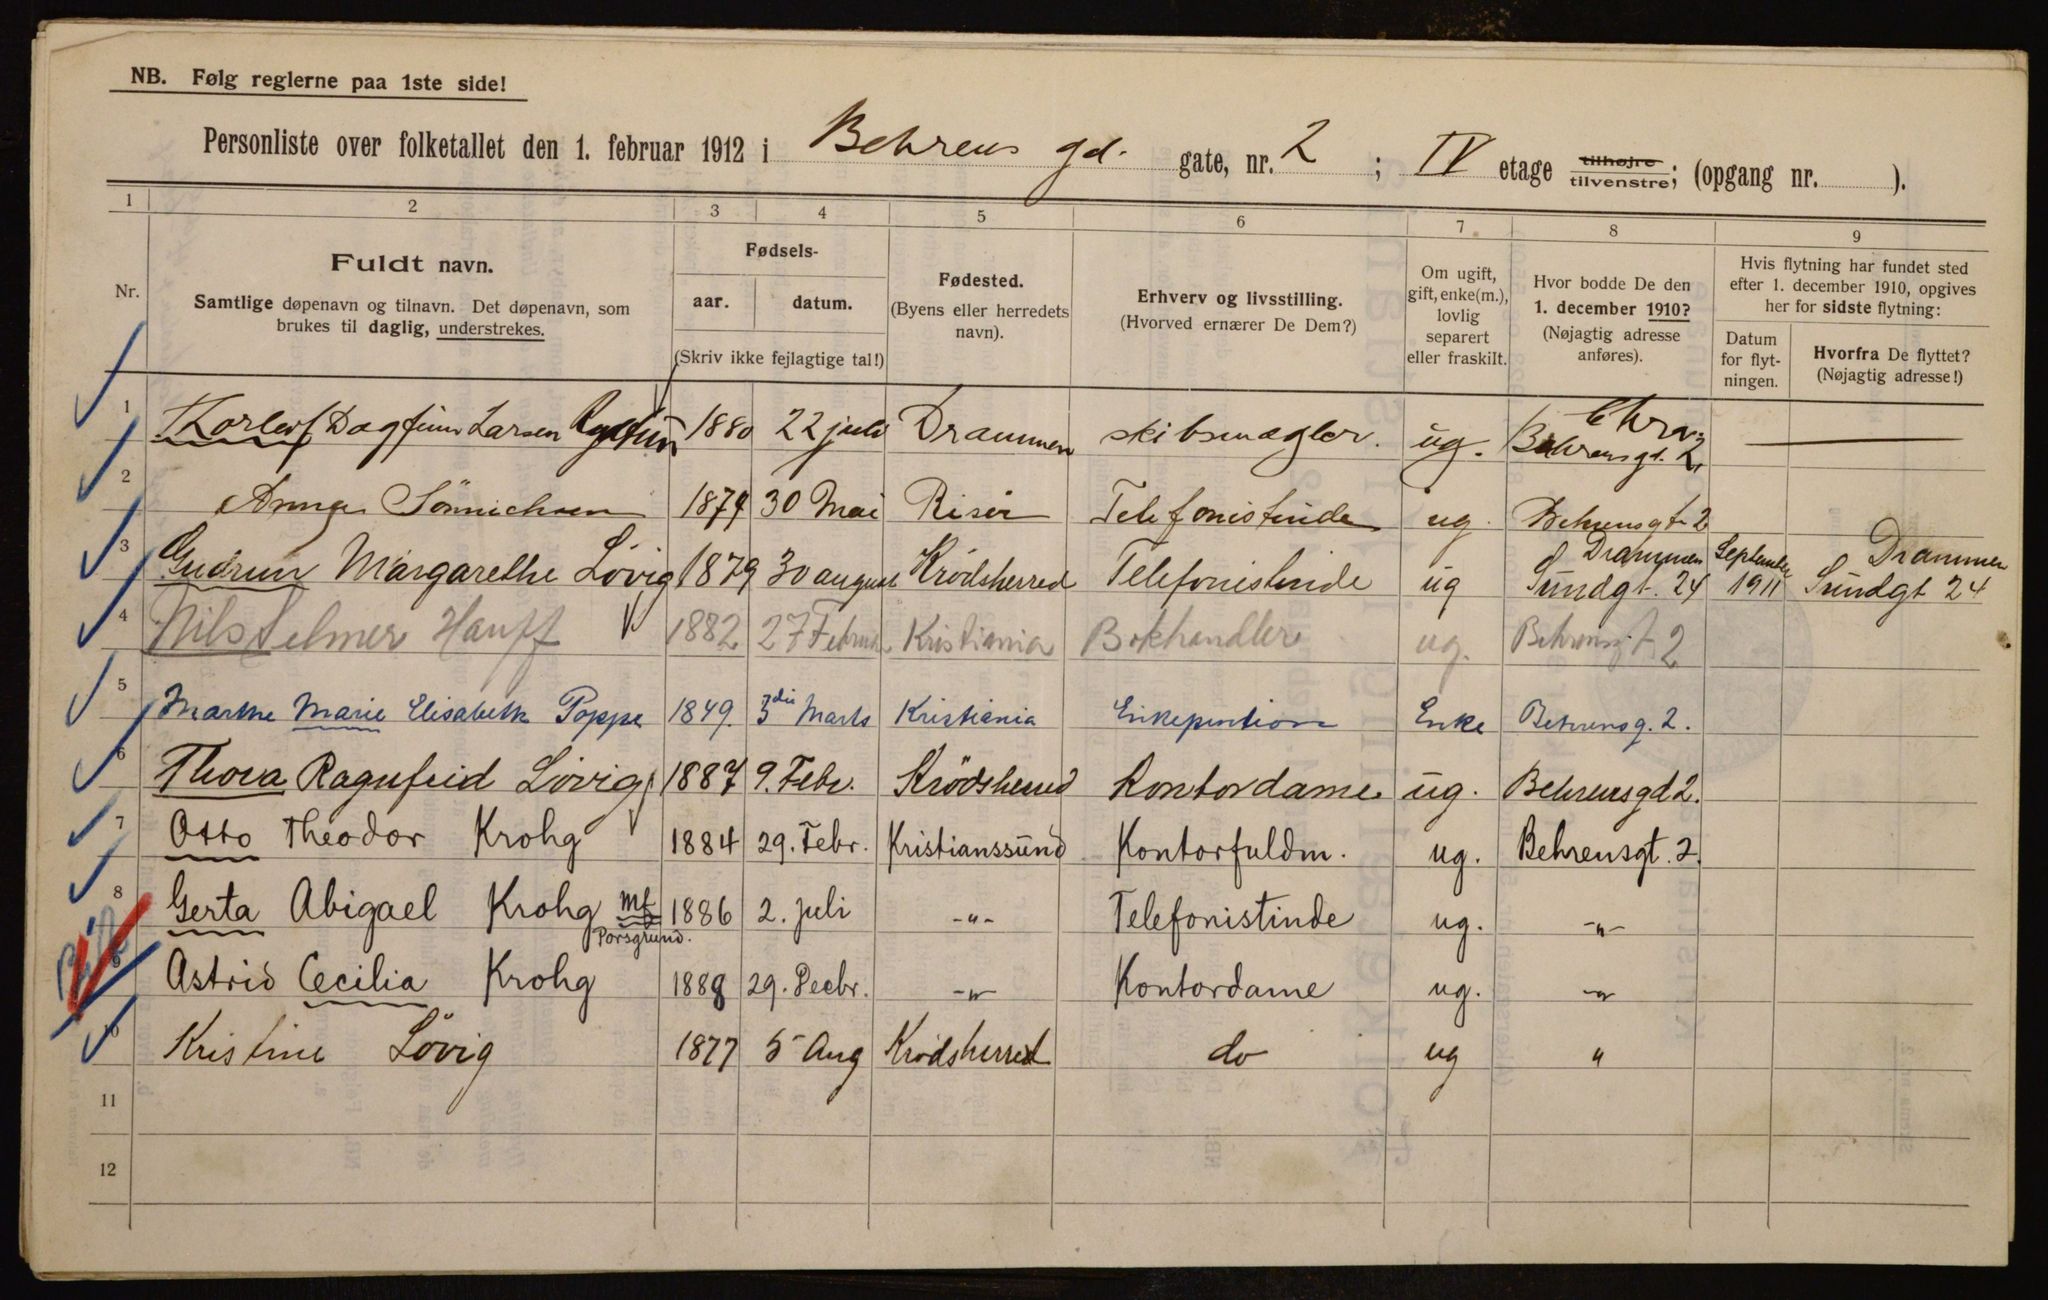 NB. Følg reglerne paa 1ste side!
Personliste over folketallet den 1. februar 1912 i Behrens gd. gate, nr. 2 ; IV etage tilhøjre tilvenstre; (opgang nr. ).
1 2 3 4 5 6 7 8 9
Nr.
Fuldt navn.
Samtlige døpenavn og tilnavn. Det døpenavn, som
brukes til daglig, understrekes.
Fødsels-
aar. datum.
(Skriv ikke fejlagtige tal!)
Fødested.
(Byens eller herredets
navn).
Erhverv og livsstilling.
(Hvorved ernærer De Dem?)
Om ugift,
gift, enke(m.),
lovlig
separert
eller fraskilt.
Hvor bodde De den
1. december 1910?
(Nøjagtig adresse
anføres).
Hvis flytning har fundet sted
efter 1. december 1910, opgives
her for sidste flytning:
Datum
for flyt-
ningen.
Hvorfra De flyttet?
(Nøjagtig adresse!)
1 Thorleif Dagfinn Larsen 1880 22 juli Drammen skibsmægler. ug. Chra. Behrensgd. 2
2 Anna Sönnichsen 1874 30 Mai Risör Telefonistinde ug. Behrensgt 2
3 Gudrun Margarethe Lövig 1879 30 august Krödsherred Telefonistinde ug Drammen Sundgt. 24 September 1911 Drammen Sundgt 24
4 Nils Selmer Hauff 1882 27 Februar Kristiania Bokhandler ug. Behrensgt 2
5 Marthe Marie Elisabeth Poppe 1849. 3die Marts Kristiania Enkepention Enke Behrensg. 2.
6 Thora Ragnfrid Lövig 1887 9. Febr. Krödsherred Kontordame ug. Behrensgd 2.
7 Otto Theodor Krohg 1884 29. Febr. Kristianssund Kontorfuldm. ug. Behrensgt. 2.
8 Gerta Abigael Krohg mf Porsgrund. 1886 2. juli -"- Telefonistinde ug. -"-
9 Astrid Cecilia Krohg 1888 29. Decbr. -"- Kontordame ug. -"-
10 Kristine Lövig 1877 5 Aug Krödsherred do ug "
11
12